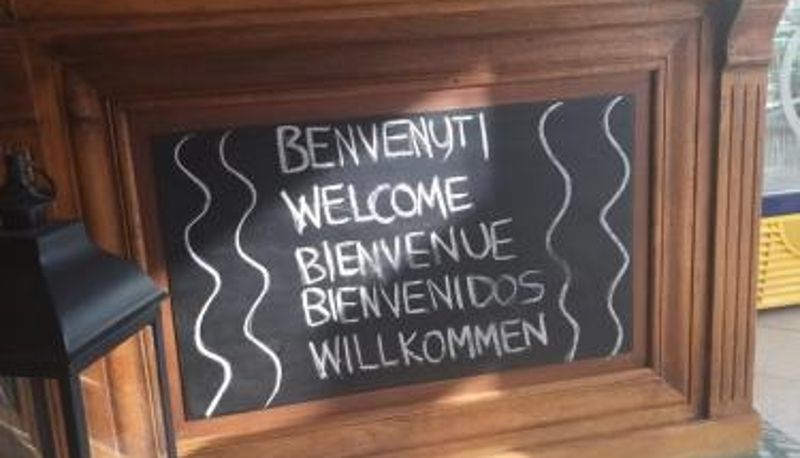 BENVENUTI
WELCOME
BIENVENUE
BIENVENIDOS
WILLKOMMEN